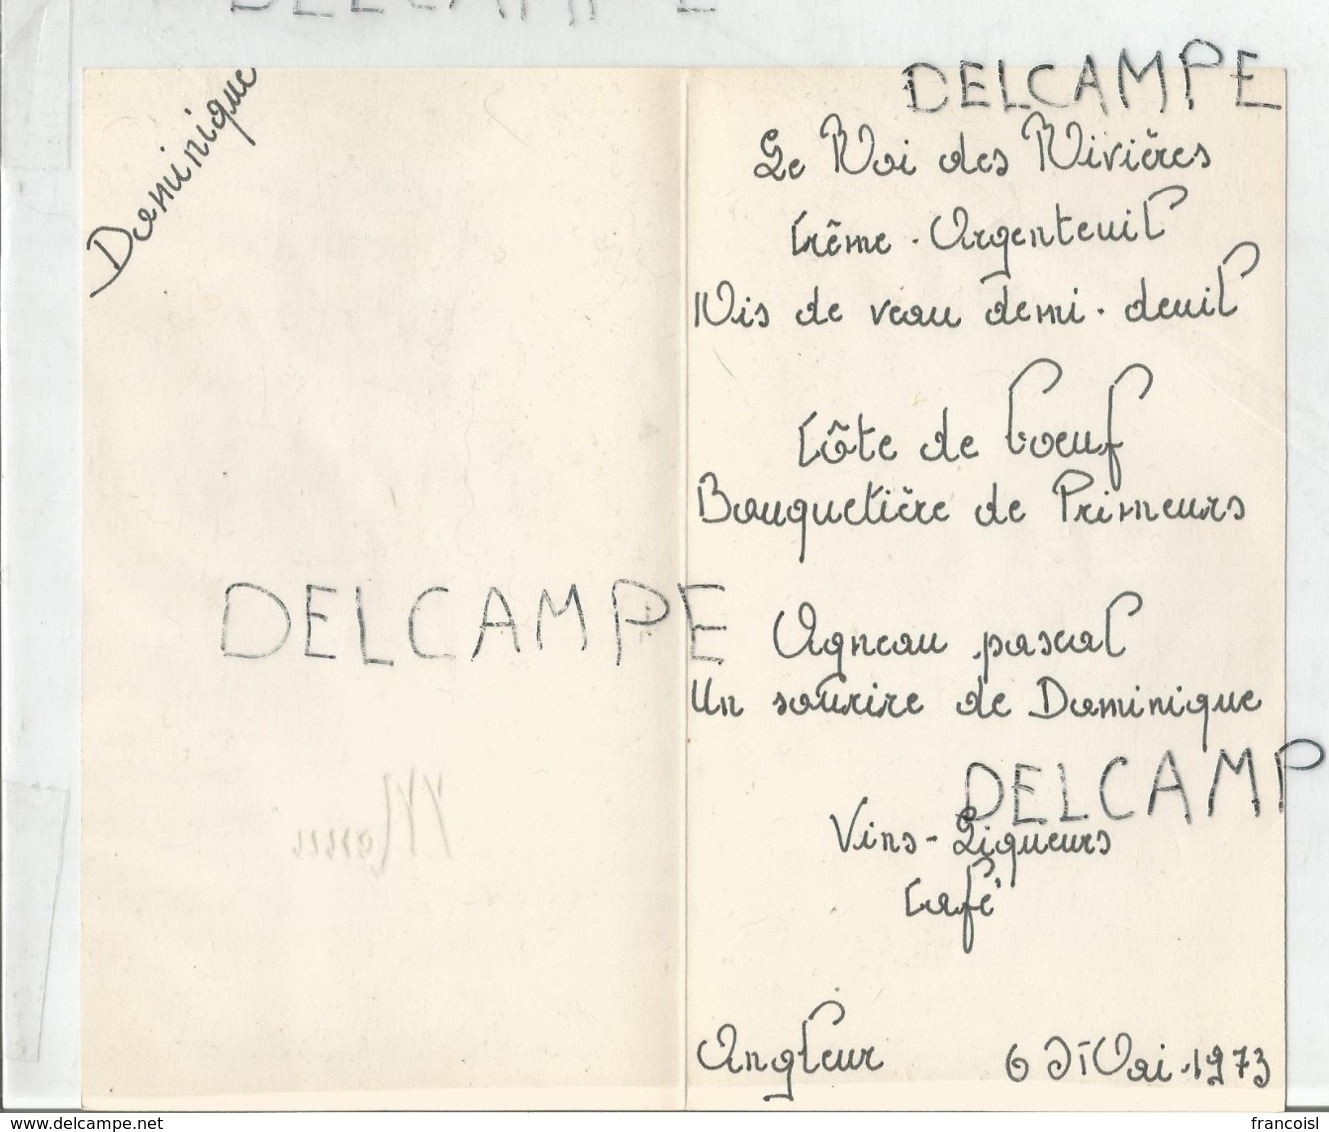 DELCAMPE
DELCAMPE
Dominique
Le Roi des Rivières
Crême-Argenteuil
Ris de veau demi-deuil
Côte de boeuf
Bouquetière de Primeurs
DELCAMPE
Agneau pascal
Un sourire de Dominique
DELCAMP
Vins-Liqueurs
Café
Menu
Angleur 6 Mai.1973
www.delcampe.net
francoisl